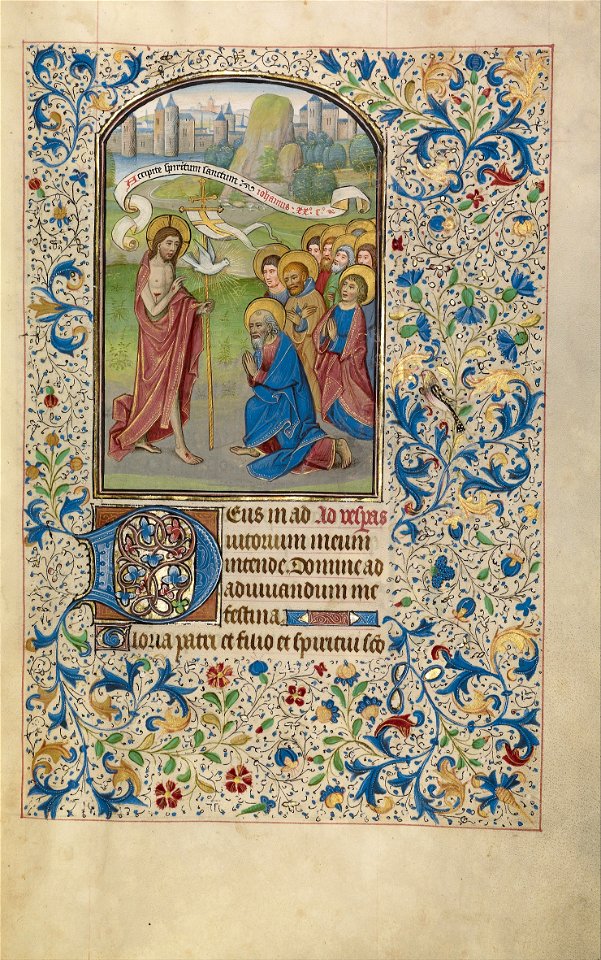 Accipite spiritum sanctum iohannis xx° c°
Deus in ad Ad vespas
iutorium meum
intende. Domine ad
adiuuandum me
festina.
Gloria patri et filio et spiritui sco